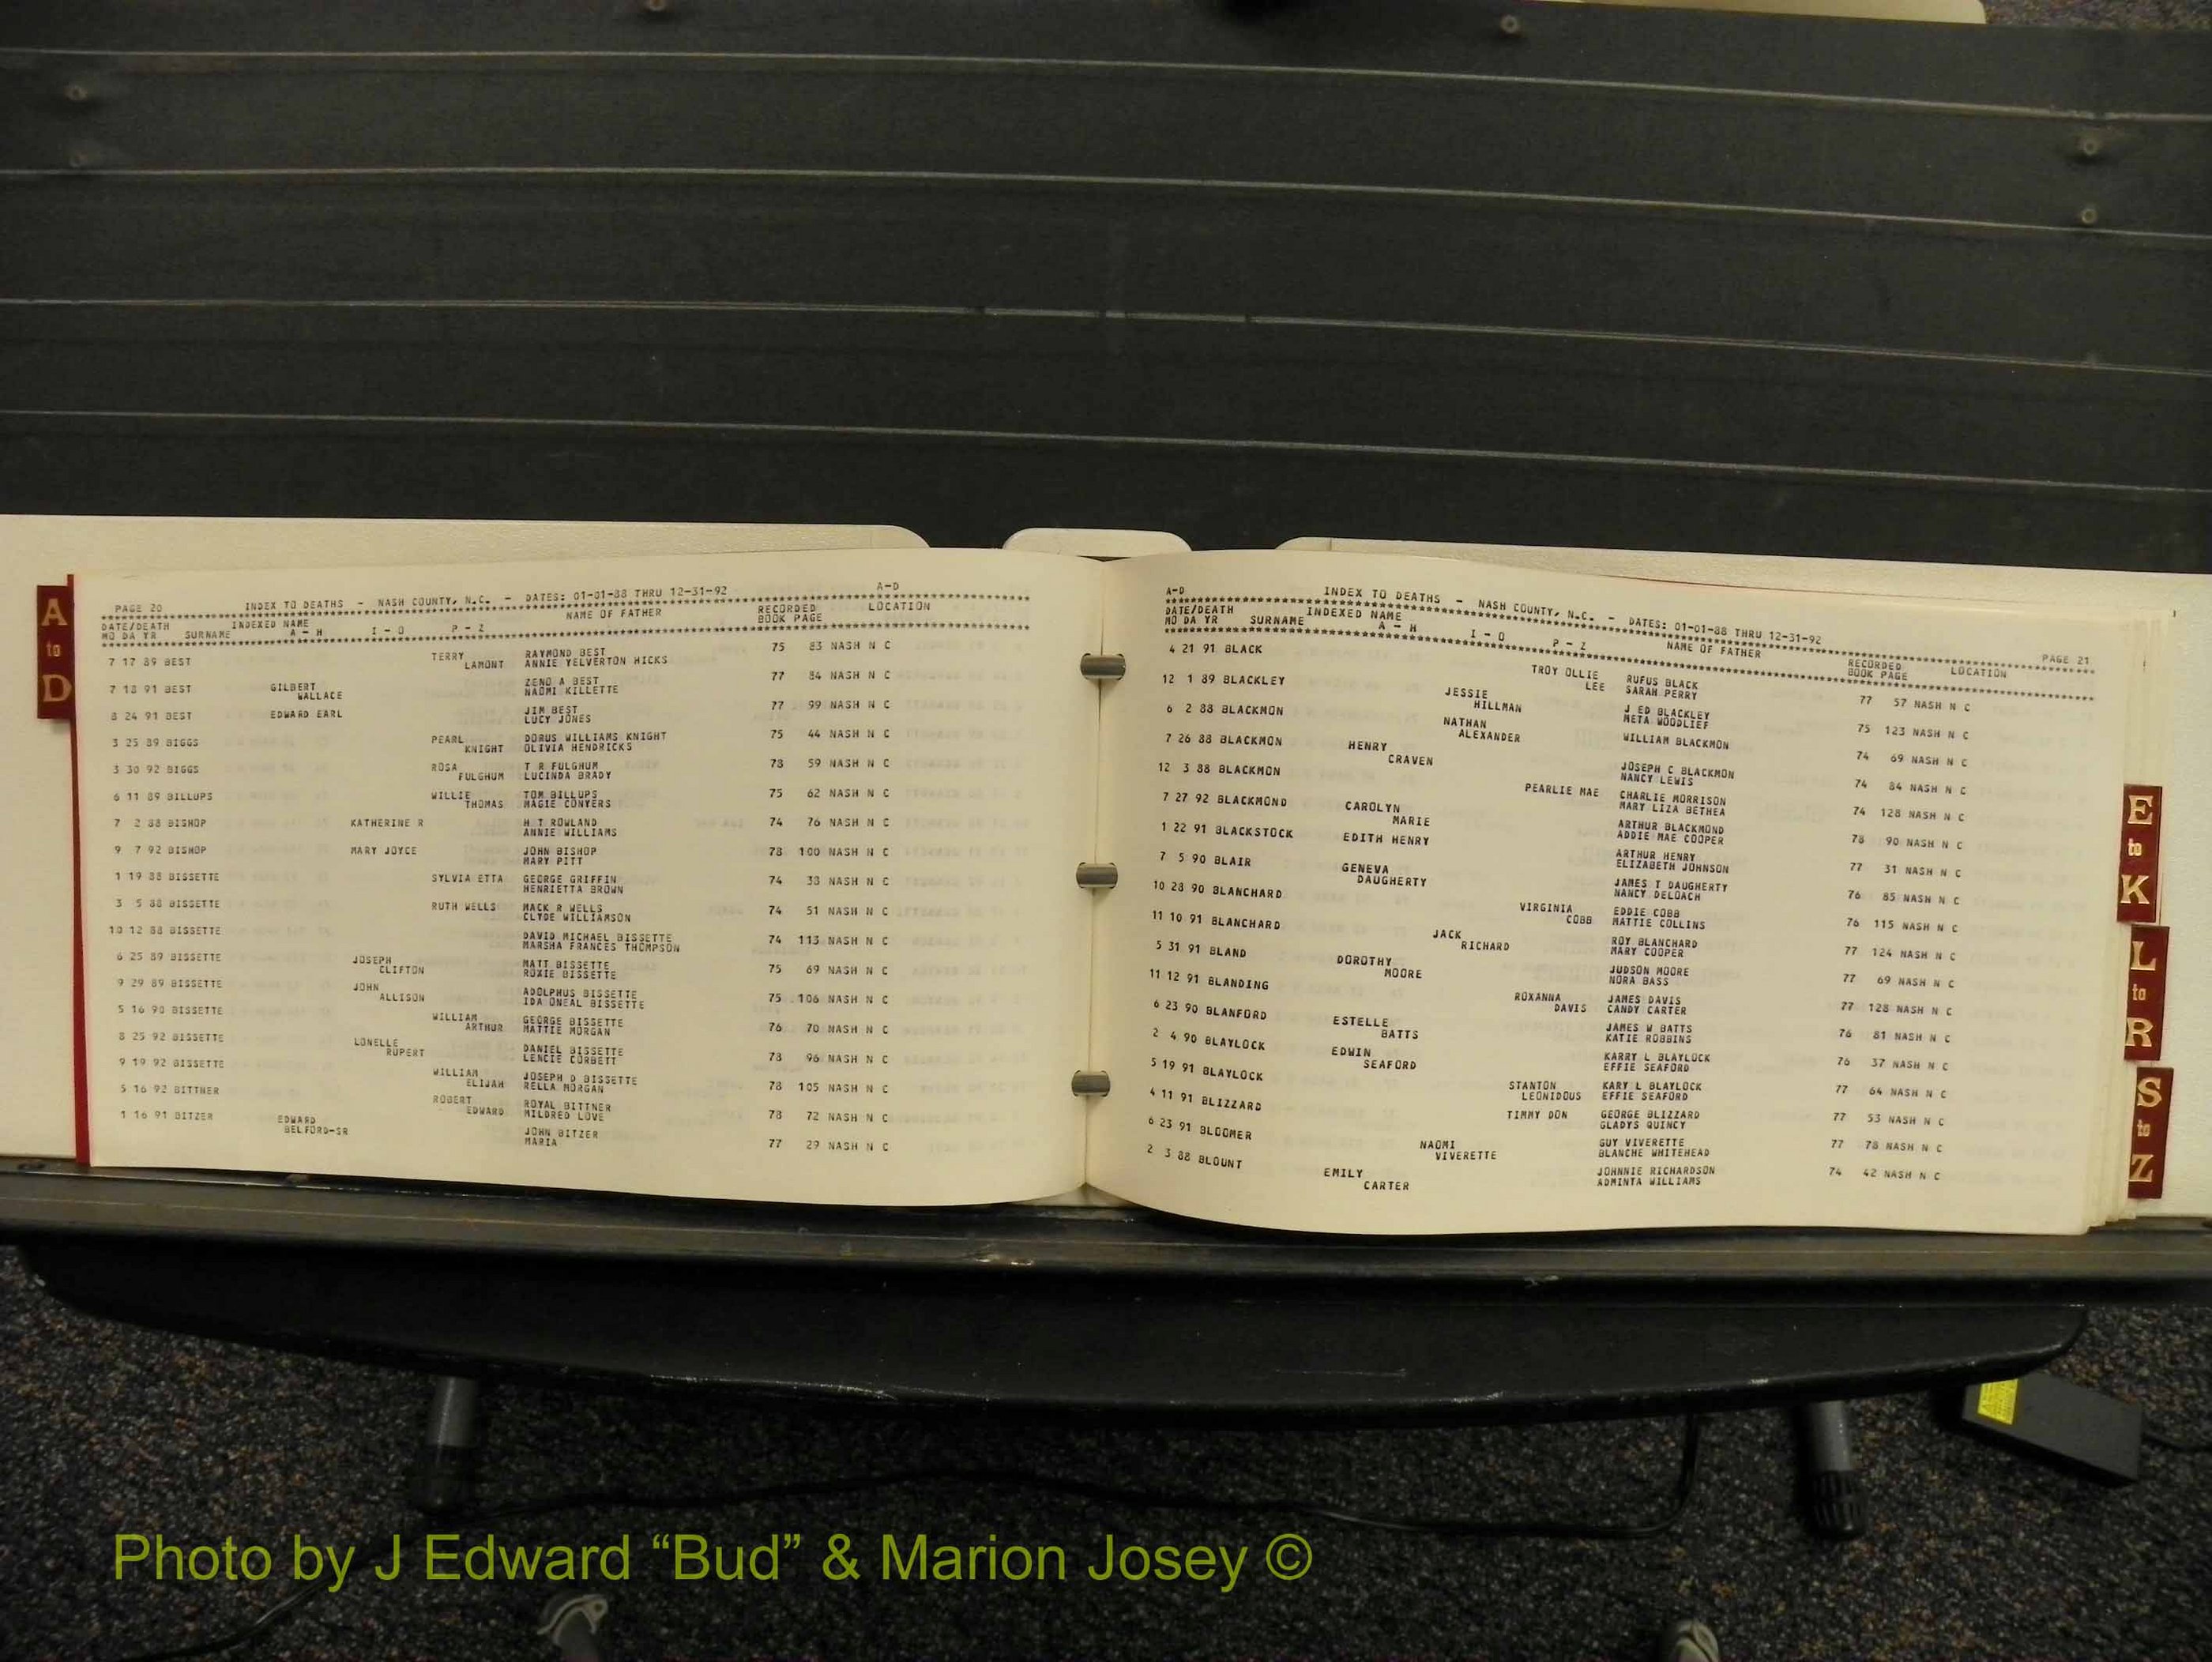 A to D
PAGE 20 INDEX TO DEATHS - NASH COUNTY, N.C. - DATES: 01-01-88 THRU 12-31-92 A-D
DATE/DEATH INDEXED NAME NAME OF FATHER RECORDED LOCATION
MO DA YR SURNAME A - H I - O P - Z BOOK PAGE
7 17 89 BEST TERRY RAYMOND BEST 75 83 NASH N C
LAMONT ANNIE YELVERTON HICKS
7 18 91 BEST GILBERT ZENO A BEST 77 84 NASH N C
WALLACE NAOMI KILLETTE
8 24 91 BEST EDWARD EARL JIM BEST 77 99 NASH N C
LUCY JONES
3 25 89 BIGGS PEARL DORUS WILLIAMS KNIGHT 75 44 NASH N C
KNIGHT OLIVIA HENDRICKS
3 30 92 BIGGS ROSA T R FULGHUM 78 59 NASH N C
FULGHUM LUCINDA BRADY
6 11 89 BILLUPS WILLIE TOM BILLUPS 75 62 NASH N C
THOMAS MAGIE CONYERS
7 2 88 BISHOP KATHERINE R H T ROWLAND 74 76 NASH N C
ANNIE WILLIAMS
9 7 92 BISHOP MARY JOYCE JOHN BISHOP 78 100 NASH N C
MARY PITT
1 19 88 BISSETTE SYLVIA ETTA GEORGE GRIFFIN 74 38 NASH N C
HENRIETTA BROWN
3 5 88 BISSETTE RUTH WELLS MACK R WELLS 74 51 NASH N C
CLYDE WILLIAMSON
10 12 88 BISSETTE DAVID MICHAEL BISSETTE 74 113 NASH N C
MARSHA FRANCES THOMPSON
6 25 89 BISSETTE JOSEPH MATT BISSETTE 75 69 NASH N C
CLIFTON ROXIE BISSETTE
9 29 89 BISSETTE JOHN ADOLPHUS BISSETTE 75 106 NASH N C
ALLISON IDA ONEAL BISSETTE
5 16 90 BISSETTE WILLIAM GEORGE BISSETTE 76 70 NASH N C
ARTHUR MATTIE MORGAN
8 25 92 BISSETTE LONELLE DANIEL BISSETTE 78 96 NASH N C
RUPERT LENCIE CORBETT
9 19 92 BISSETTE WILLIAM JOSEPH D BISSETTE 78 105 NASH N C
ELIJAH RELLA MORGAN
5 16 92 BITTNER ROBERT ROYAL BITTNER 78 72 NASH N C
EDWARD MILDRED LOVE
1 16 91 BITZER EDWARD JOHN BITZER 77 29 NASH N C
BELFORD-SR MARIA
A-D INDEX TO DEATHS - NASH COUNTY, N.C. - DATES: 01-01-88 THRU 12-31-92 PAGE 21
DATE/DEATH INDEXED NAME NAME OF FATHER RECORDED LOCATION
MO DA YR SURNAME A - H I - O P - Z BOOK PAGE
4 21 91 BLACK TROY OLLIE RUFUS BLACK 77 57 NASH N C
LEE SARAH PERRY
12 1 89 BLACKLEY JESSIE J ED BLACKLEY 75 123 NASH N C
HILLMAN META WOODLIEF
6 2 88 BLACKMON NATHAN WILLIAM BLACKMON 74 69 NASH N C
ALEXANDER
7 26 88 BLACKMON HENRY JOSEPH C BLACKMON 74 84 NASH N C
CRAVEN NANCY LEWIS
12 3 88 BLACKMON PEARLIE MAE CHARLIE MORRISON 74 128 NASH N C
MARY LIZA BETHEA
7 27 92 BLACKMOND CAROLYN ARTHUR BLACKMOND 78 90 NASH N C
MARIE ADDIE MAE COOPER
1 22 91 BLACKSTOCK EDITH HENRY ARTHUR HENRY 77 31 NASH N C
ELIZABETH JOHNSON
7 5 90 BLAIR GENEVA JAMES T DAUGHERTY 76 85 NASH N C
DAUGHERTY NANCY DELOACH
10 28 90 BLANCHARD VIRGINIA EDDIE COBB 76 115 NASH N C
COBB MATTIE COLLINS
11 10 91 BLANCHARD JACK ROY BLANCHARD 77 124 NASH N C
RICHARD MARY COOPER
5 31 91 BLAND DOROTHY JUDSON MOORE 77 69 NASH N C
MOORE NORA BASS
11 12 91 BLANDING ROXANNA JAMES DAVIS 77 128 NASH N C
DAVIS CANDY CARTER
6 23 90 BLANFORD ESTELLE JAMES W BATTS 76 81 NASH N C
BATTS KATIE ROBBINS
2 4 90 BLAYLOCK EDWIN KARRY L BLAYLOCK 76 37 NASH N C
SEAFORD EFFIE SEAFORD
5 19 91 BLAYLOCK STANTON KARY L BLAYLOCK 77 64 NASH N C
LEONIDOUS EFFIE SEAFORD
4 11 91 BLIZZARD TIMMY DON GEORGE BLIZZARD 77 53 NASH N C
GLADYS QUINCY
6 23 91 BLOOMER NAOMI GUY VIVERETTE 77 78 NASH N C
VIVERETTE BLANCHE WHITEHEAD
2 3 88 BLOUNT EMILY JOHNNIE RICHARDSON 74 42 NASH N C
CARTER ADMINTA WILLIAMS
E to K
L to R
S to Z
Photo by J Edward “Bud” & Marion Josey ©